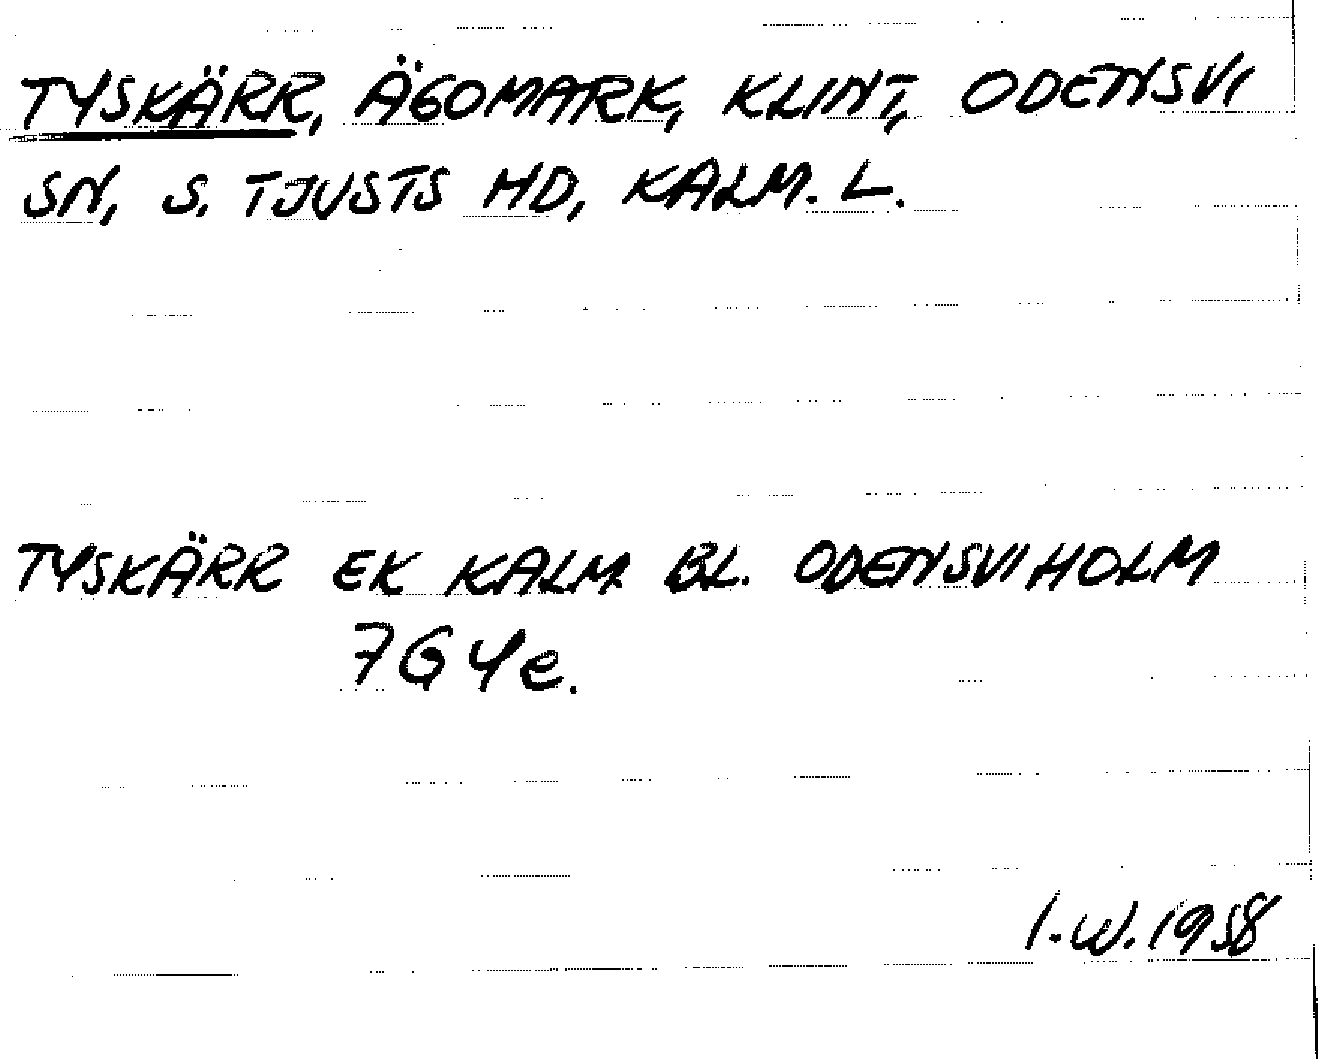 TYSKÄRR, ÄGOMARK, KLINT, ODENSVI
SN, S. TJUSTS HD, KALM. L.
TYSKÄRR EK KALM BL. ODENSVIHOLM
7G4e.
I.W. 1958